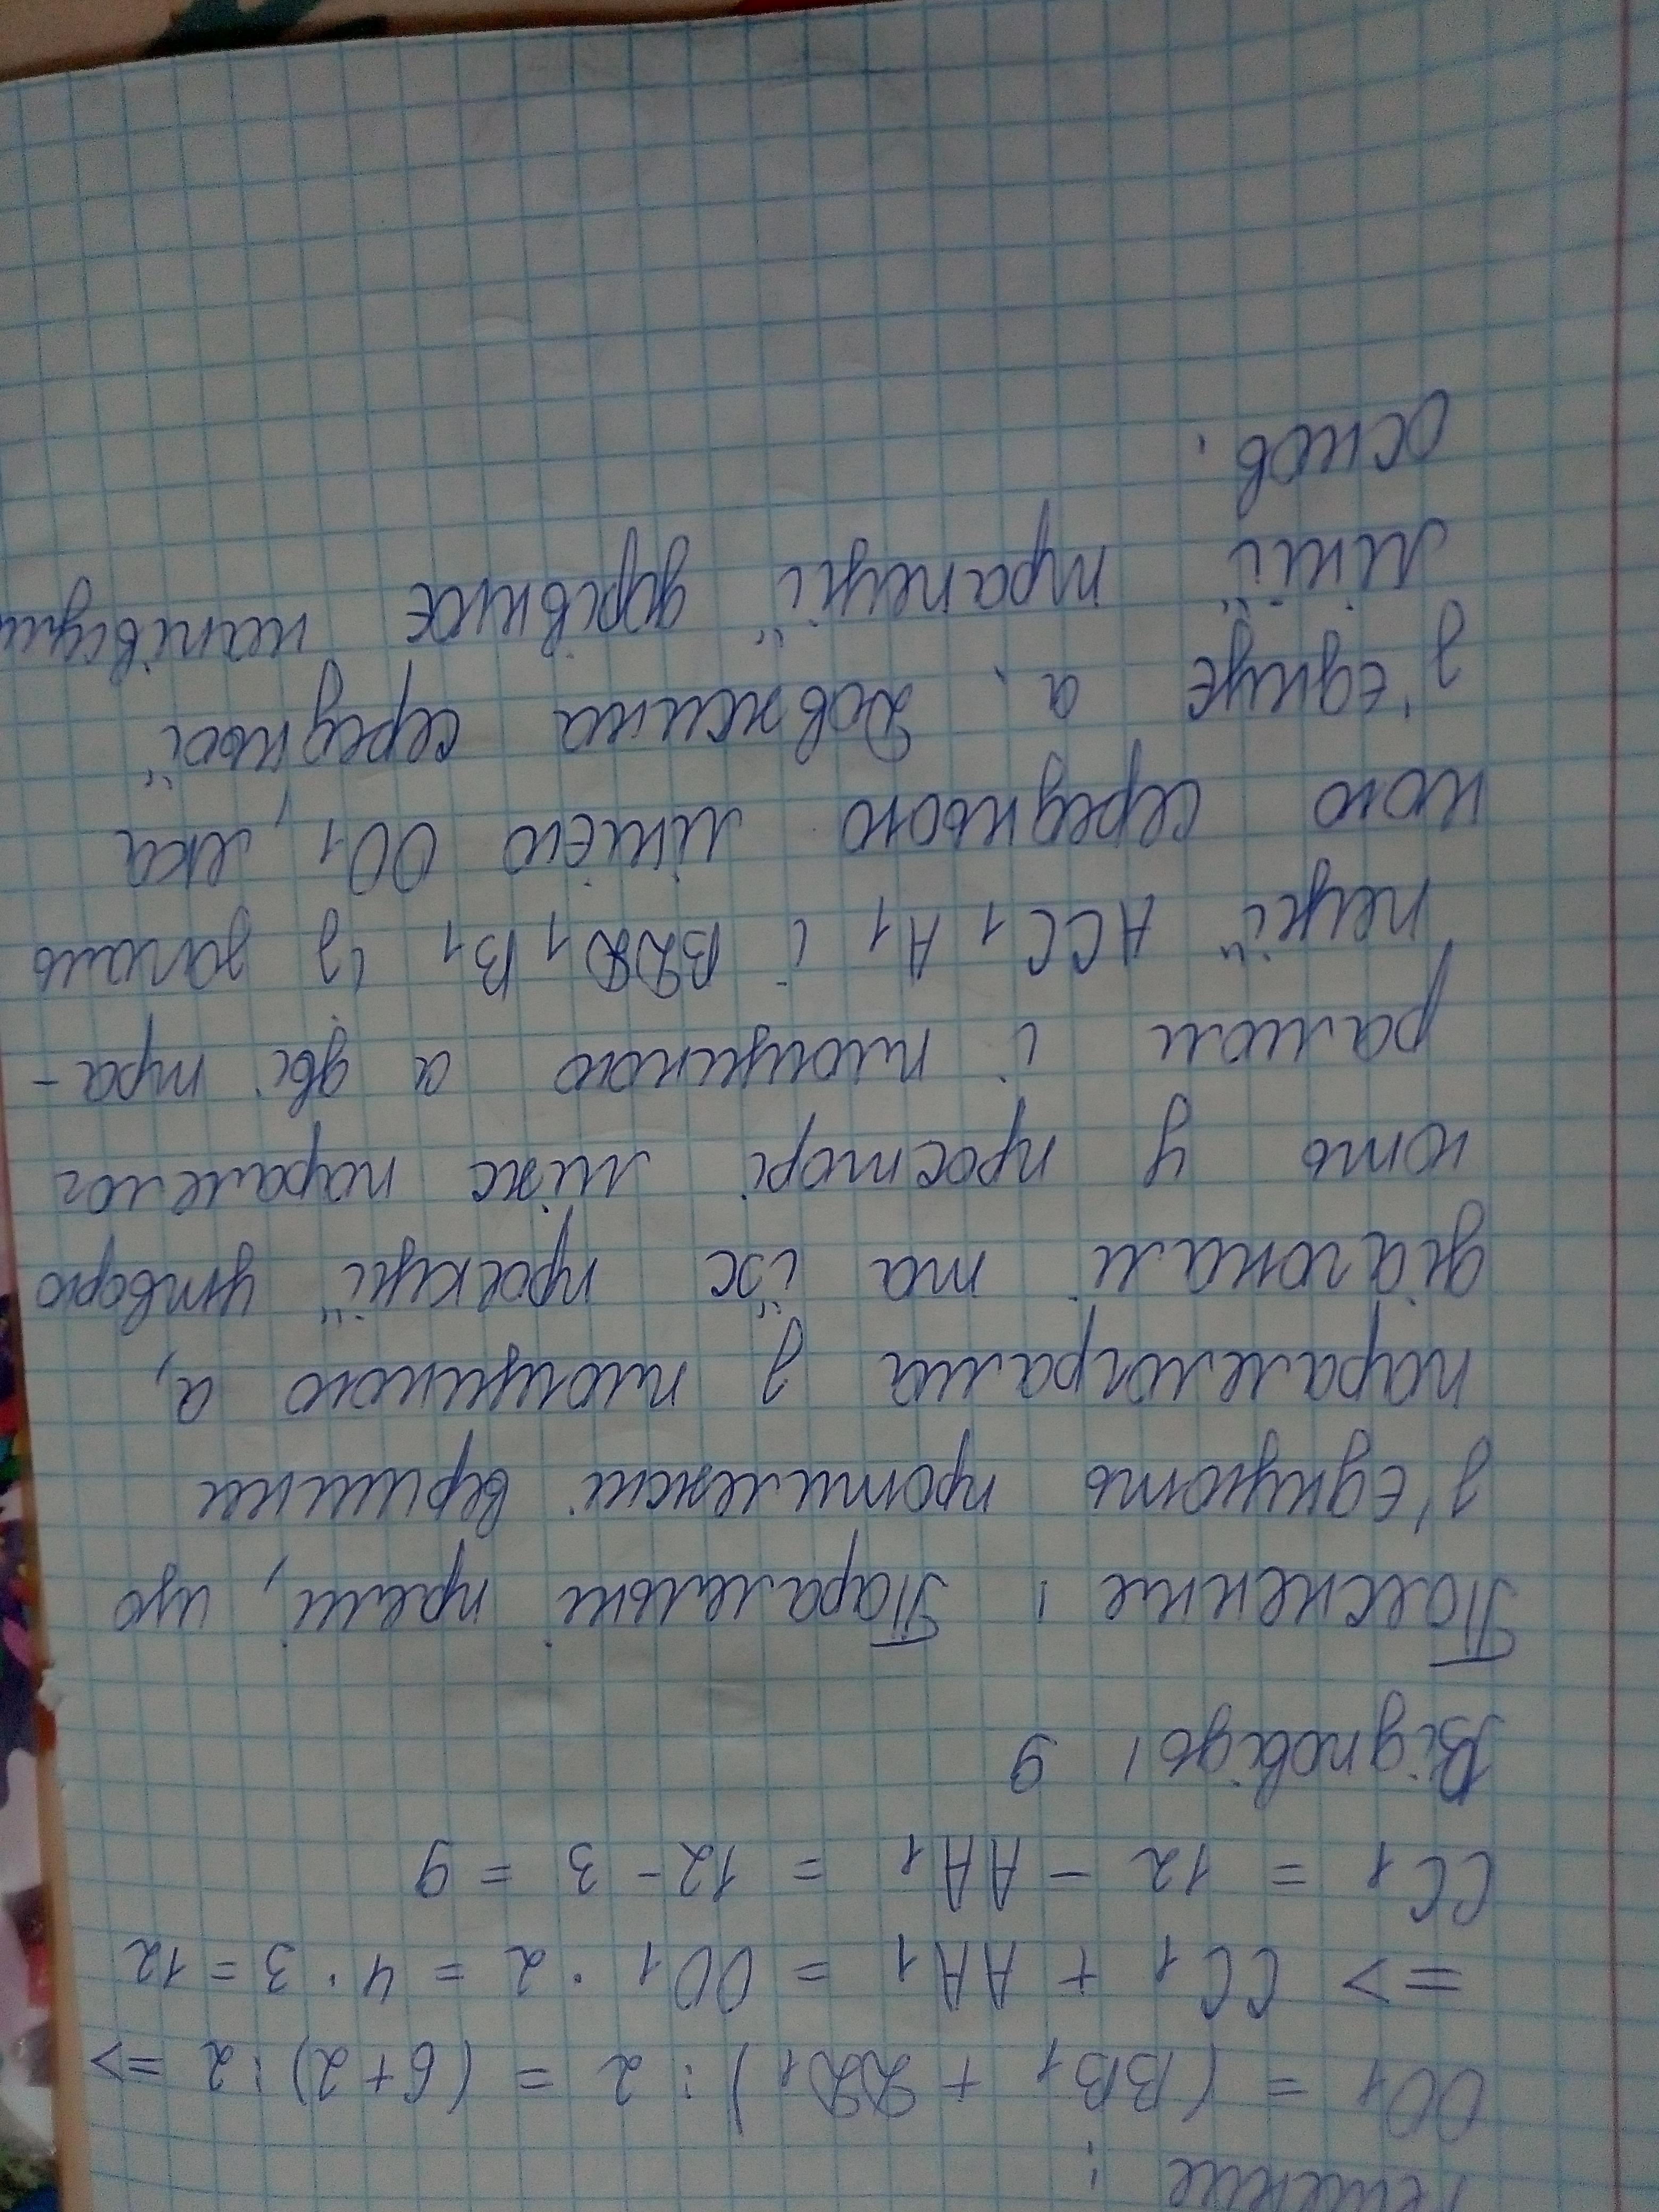 Рішення :
OO1 = (BB1 + DD1) : 2 = (6+2) : 2 =>
=> CC1 + AA1 = OO1 · 2 = 4 · 3 = 12
CC1 = 12 - AA1 = 12 - 3 = 9
Відповідь : 9
Пояснення : Паралельні прямі, що
з'єднують протилежні вершини
паралелограма з площиною a,
діагоналі та їх проекції утворю
ють у просторі між паралелог
рамом і площиною а дві тра-
пеції ACC1A1 і BDD1B1 із загаль
ною середньою лінією OO1, яка
з'єднує а. Довжина середньої
лінії трапеції дорівнює напівсумі
основ.